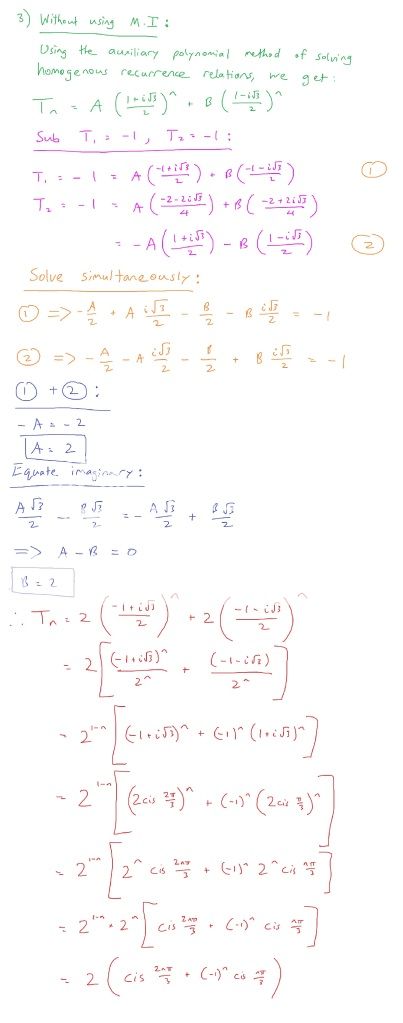 3) Without using M.I :
Using the auxiliary polynomial method of solving
homogenous recurrence relations, we get :
Tₙ = A ((1+i√3)/2)ⁿ + B ((1-i√3)/2)ⁿ
Sub T₁ = -1 , T₂ = -1 :
T₁ = -1 = A ((-1+i√3)/2) + B ((-1-i√3)/2) ①
T₂ = -1 = A ((-2-2i√3)/4) + B ((-2+2i√3)/4)
= -A ((1+i√3)/2) - B ((1-i√3)/2) ②
Solve simultaneously :
① => -A/2 + A i√3/2 - B/2 - B i√3/2 = -1
② => -A/2 - A i√3/2 - B/2 + B i√3/2 = -1
① + ② :
- A = -2
A = 2
Equate imaginary :
A√3/2 - B√3/2 = - A√3/2 + B√3/2
=> A - B = 0
B = 2
∴ Tₙ = 2 ((-1+i√3)/2)ⁿ + 2 ((-1-i√3)/2)ⁿ
= 2 [(-1+i√3)ⁿ/2ⁿ + (-1-i√3)ⁿ/2ⁿ]
= 2¹⁻ⁿ [(-1+i√3)ⁿ + (-1)ⁿ (1+i√3)ⁿ]
= 2¹⁻ⁿ [(2cis 2π/3)ⁿ + (-1)ⁿ (2cis π/3)ⁿ]
= 2¹⁻ⁿ [2ⁿ cis 2nπ/3 + (-1)ⁿ 2ⁿ cis nπ/3]
= 2¹⁻ⁿ × 2ⁿ [cis 2nπ/3 + (-1)ⁿ cis nπ/3]
= 2 (cis 2nπ/3 + (-1)ⁿ cis nπ/3)